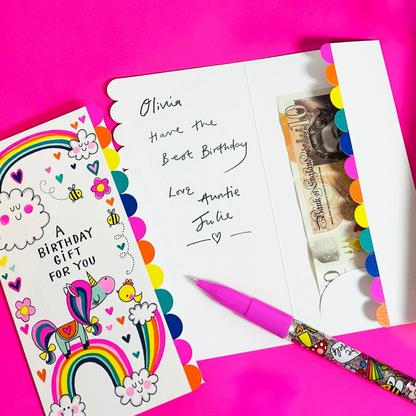 A
BIRTHDAY
GIFT
FOR YOU
Olivia
Have the
Best Birthday
Love Auntie
Julie
10
Bank of England